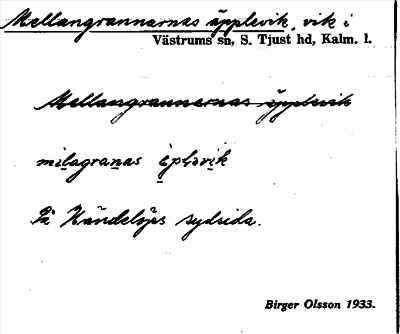 Mellangrannarnas äpplevik, vik i
Västrums sn, S. Tjust hd, Kalm. l.
Mellangrannarnas äpplevik
milagranas èpləvik
På Händelöps sydsida.
Birger Olsson 1933.